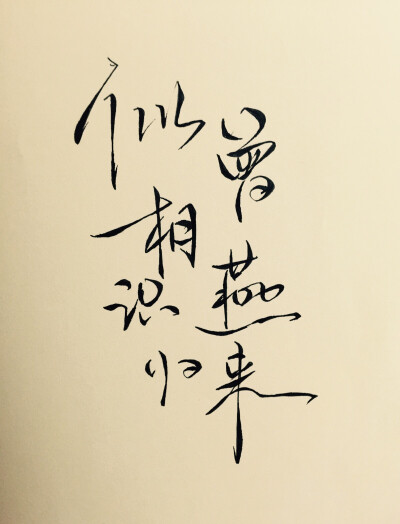 似曾
相识
燕
归来